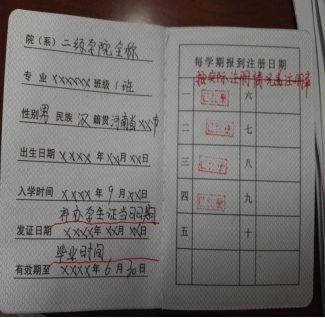 院(系) 二级学院全称
专业 xxxxxx 班级 1班
性别 男 民族 汉 籍贯 河南省xx市
出生日期 xxxx年xx月xx日
入学时间 xxxx年9月xx日
补办学生证当日日期
发证日期 xxxx年xx月xx日
毕业时间
有效期至 xxxx年6月30日
每学期报到注册日期
按实际注册情况盖注册章
一 六
二 七
三 八
四 九
五 十